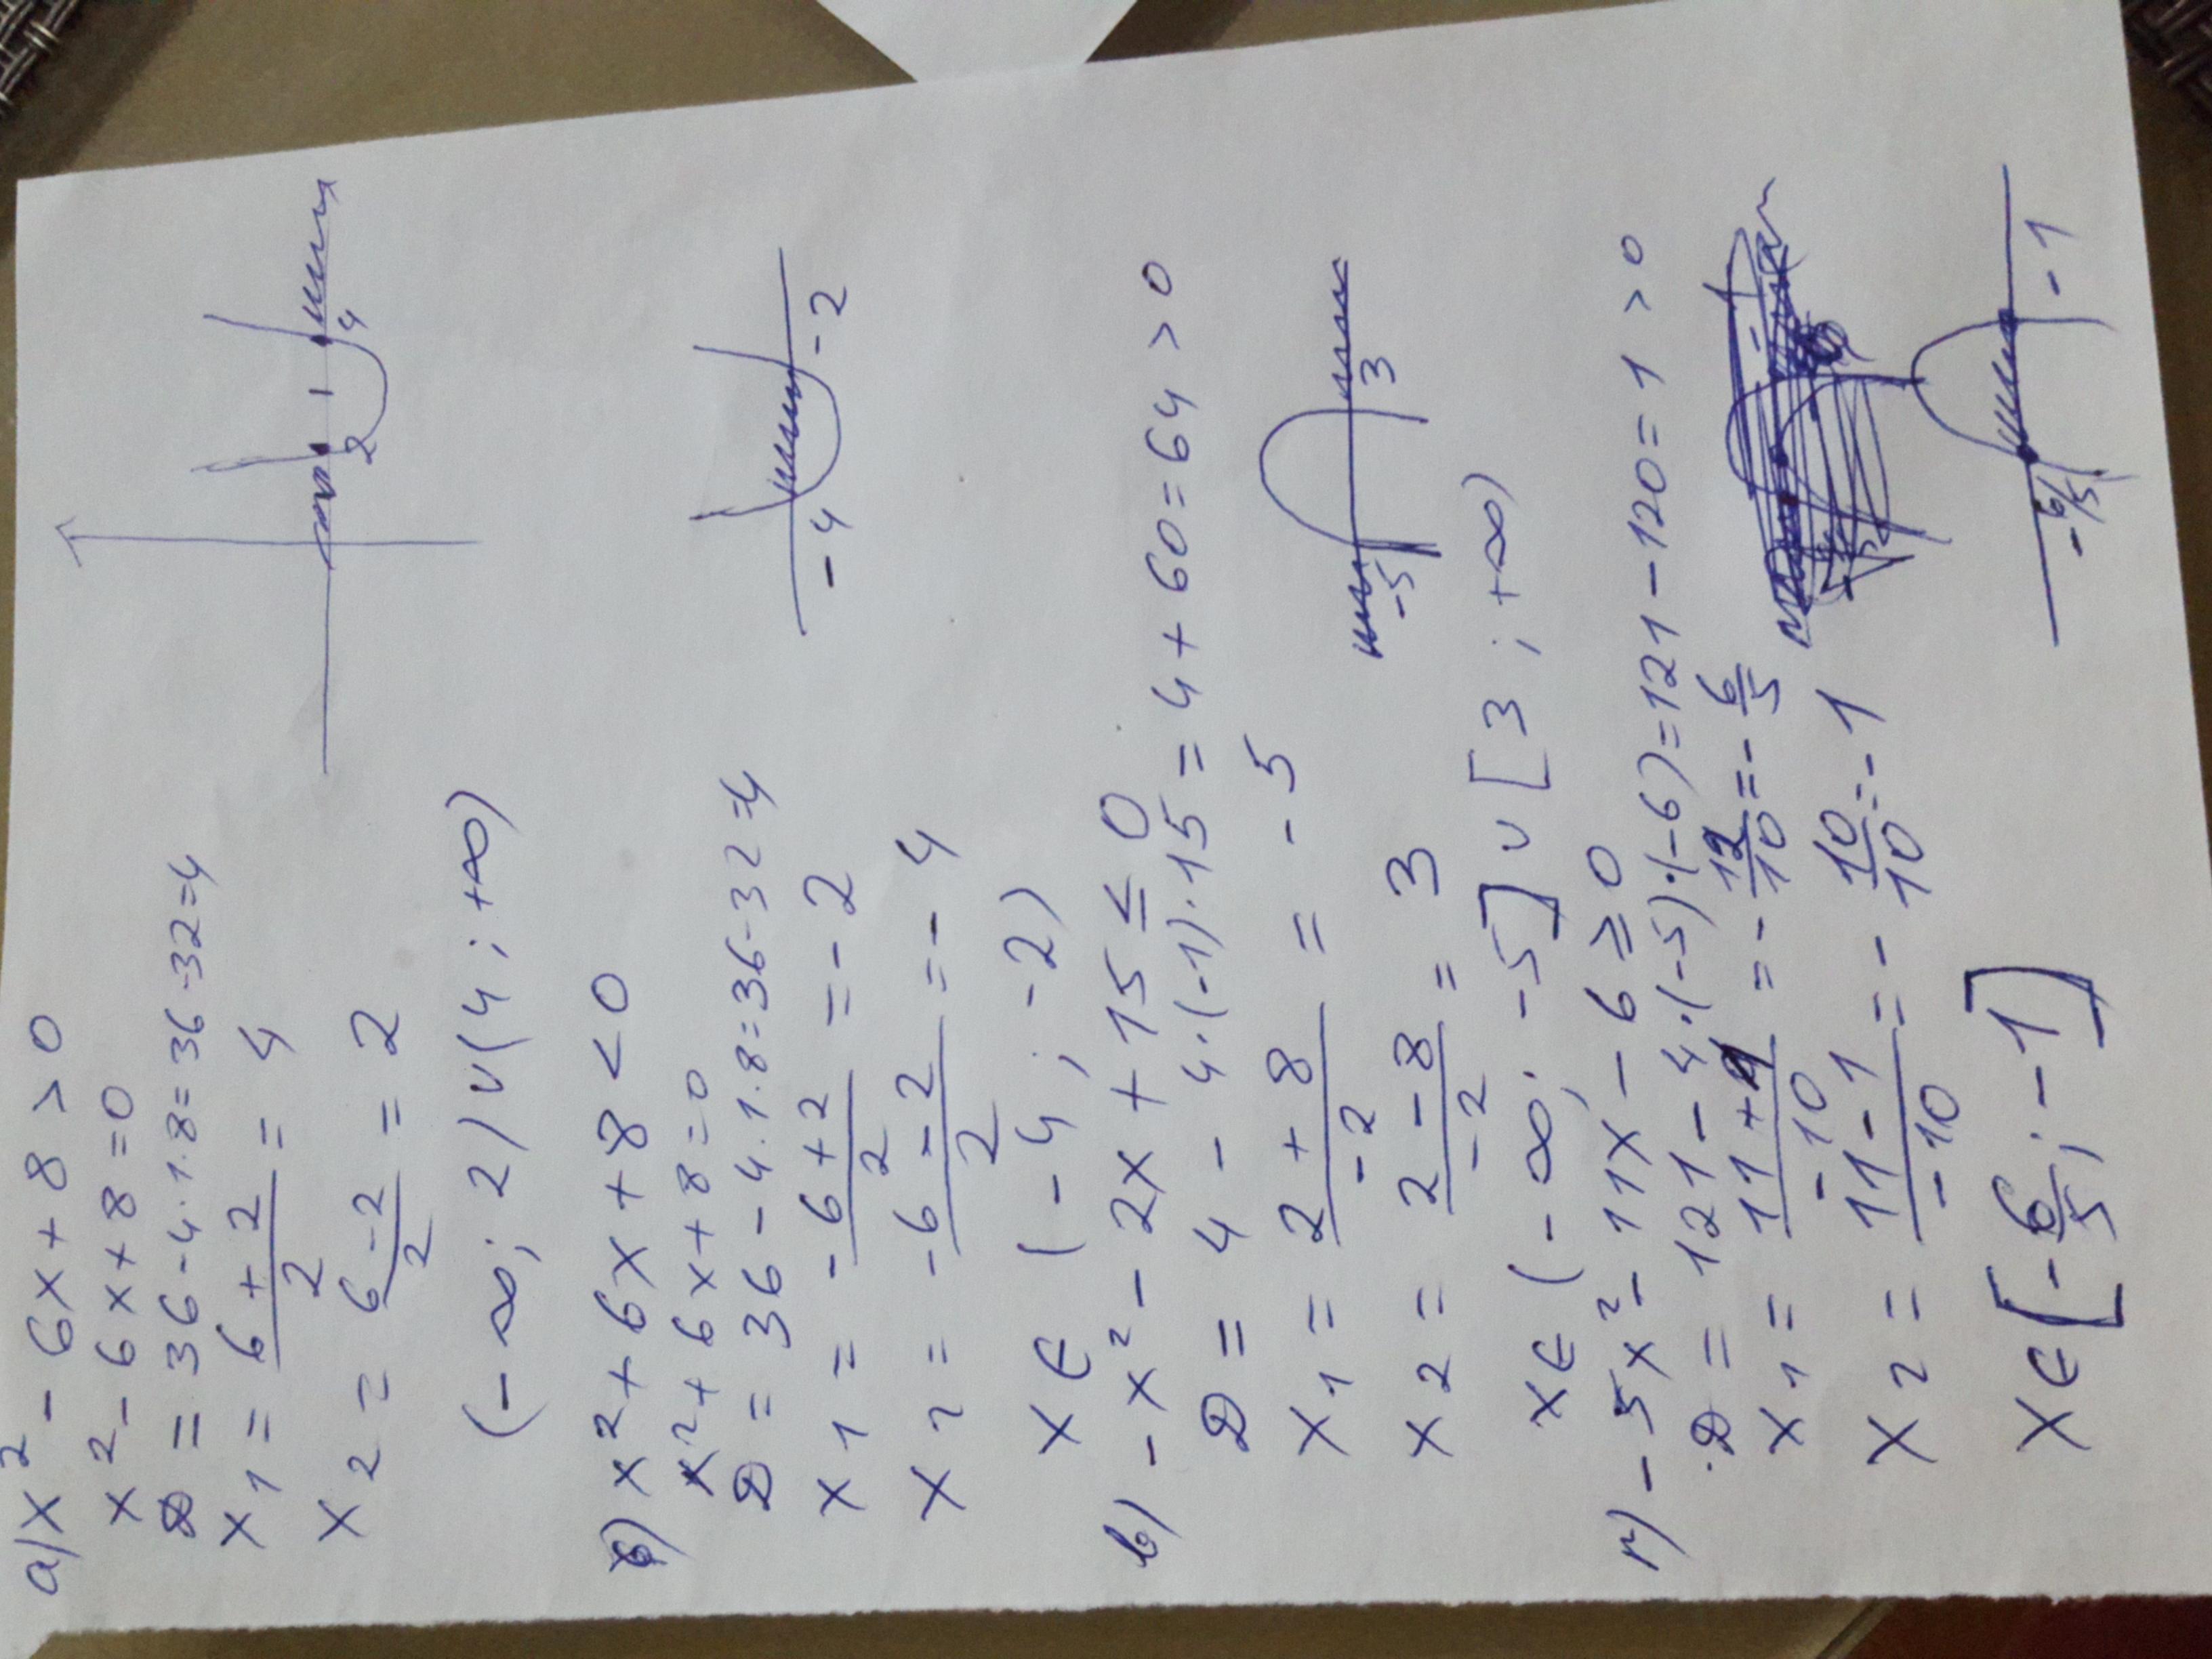 а) x² - 6x + 8 > 0
x² - 6x + 8 = 0
D = 36 - 4 · 1 · 8 = 36 - 32 = 4
x₁ = (6 + 2)/2 = 4
x₂ = (6 - 2)/2 = 2
2 4
(-∞; 2) ∪ (4; +∞)
б) x² + 6x + 8 < 0
x² + 6x + 8 = 0
D = 36 - 4 · 1 · 8 = 36 - 32 = 4
x₁ = (-6 + 2)/2 = -2
x₂ = (-6 - 2)/2 = -4
-4 -2
x ∈ (-4; -2)
в) -x² - 2x + 15 ≤ 0
D = 4 - 4 · (-1) · 15 = 4 + 60 = 64 > 0
x₁ = (2 + 8)/-2 = -5
x₂ = (2 - 8)/-2 = 3
-5 3
x ∈ (-∞; -5] ∪ [3; +∞)
г) -5x² - 11x - 6 ≥ 0
D = 121 - 4 · (-5) · (-6) = 121 - 120 = 1 > 0
x₁ = (11 + 1)/-10 = -12/10 = -6/5
x₂ = (11 - 1)/-10 = -10/10 = -1
-6/5 -1
x ∈ [-6/5; -1]